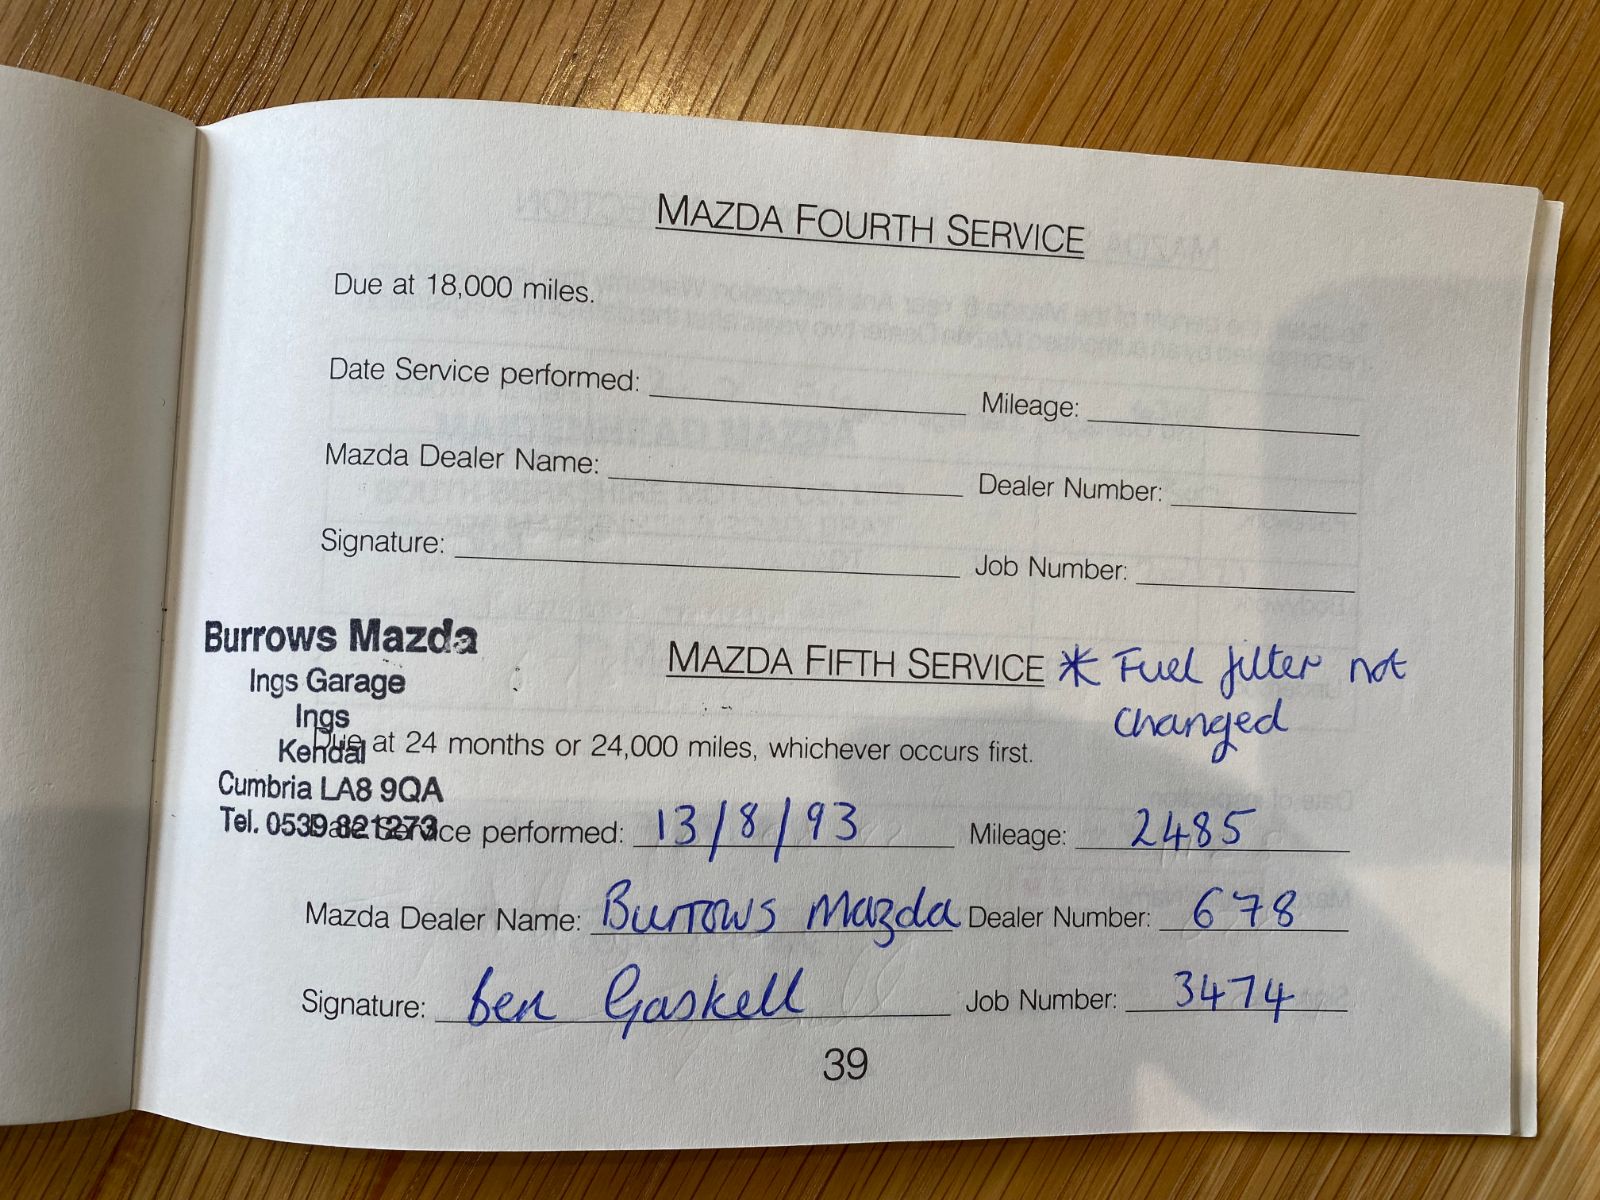 MAZDA FOURTH SERVICE
Due at 18,000 miles.
Date Service performed: Mileage:
Mazda Dealer Name: Dealer Number:
Signature: Job Number:
Burrows Mazda
Ings Garage
Ings
Kendal
Cumbria LA8 9QA
Tel. 0539 821273
MAZDA FIFTH SERVICE * Fuel filter not
changed
Due at 24 months or 24,000 miles, whichever occurs first.
Date Service performed: 13/8/93 Mileage: 2485
Mazda Dealer Name: Burrows Mazda Dealer Number: 678
Signature: Ben Gaskell Job Number: 3474
39